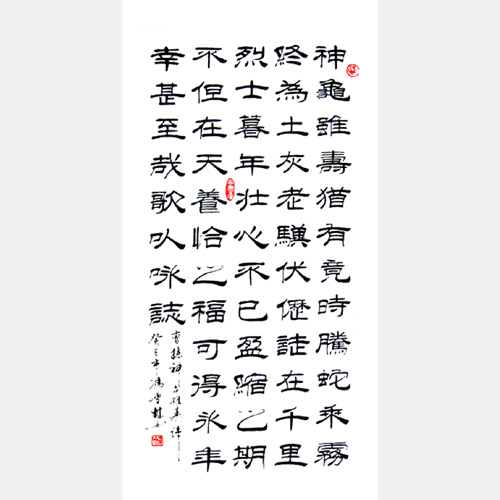 神龜雖壽猶有竟時騰蛇乘霧
終為土灰老驥伏櫪誌在千里
烈士暮年壯心不已盈縮之期
不但在天養怡之福可得永年
幸甚至哉歌以咏誌
曹操神龜雖壽詩
癸巳年馮